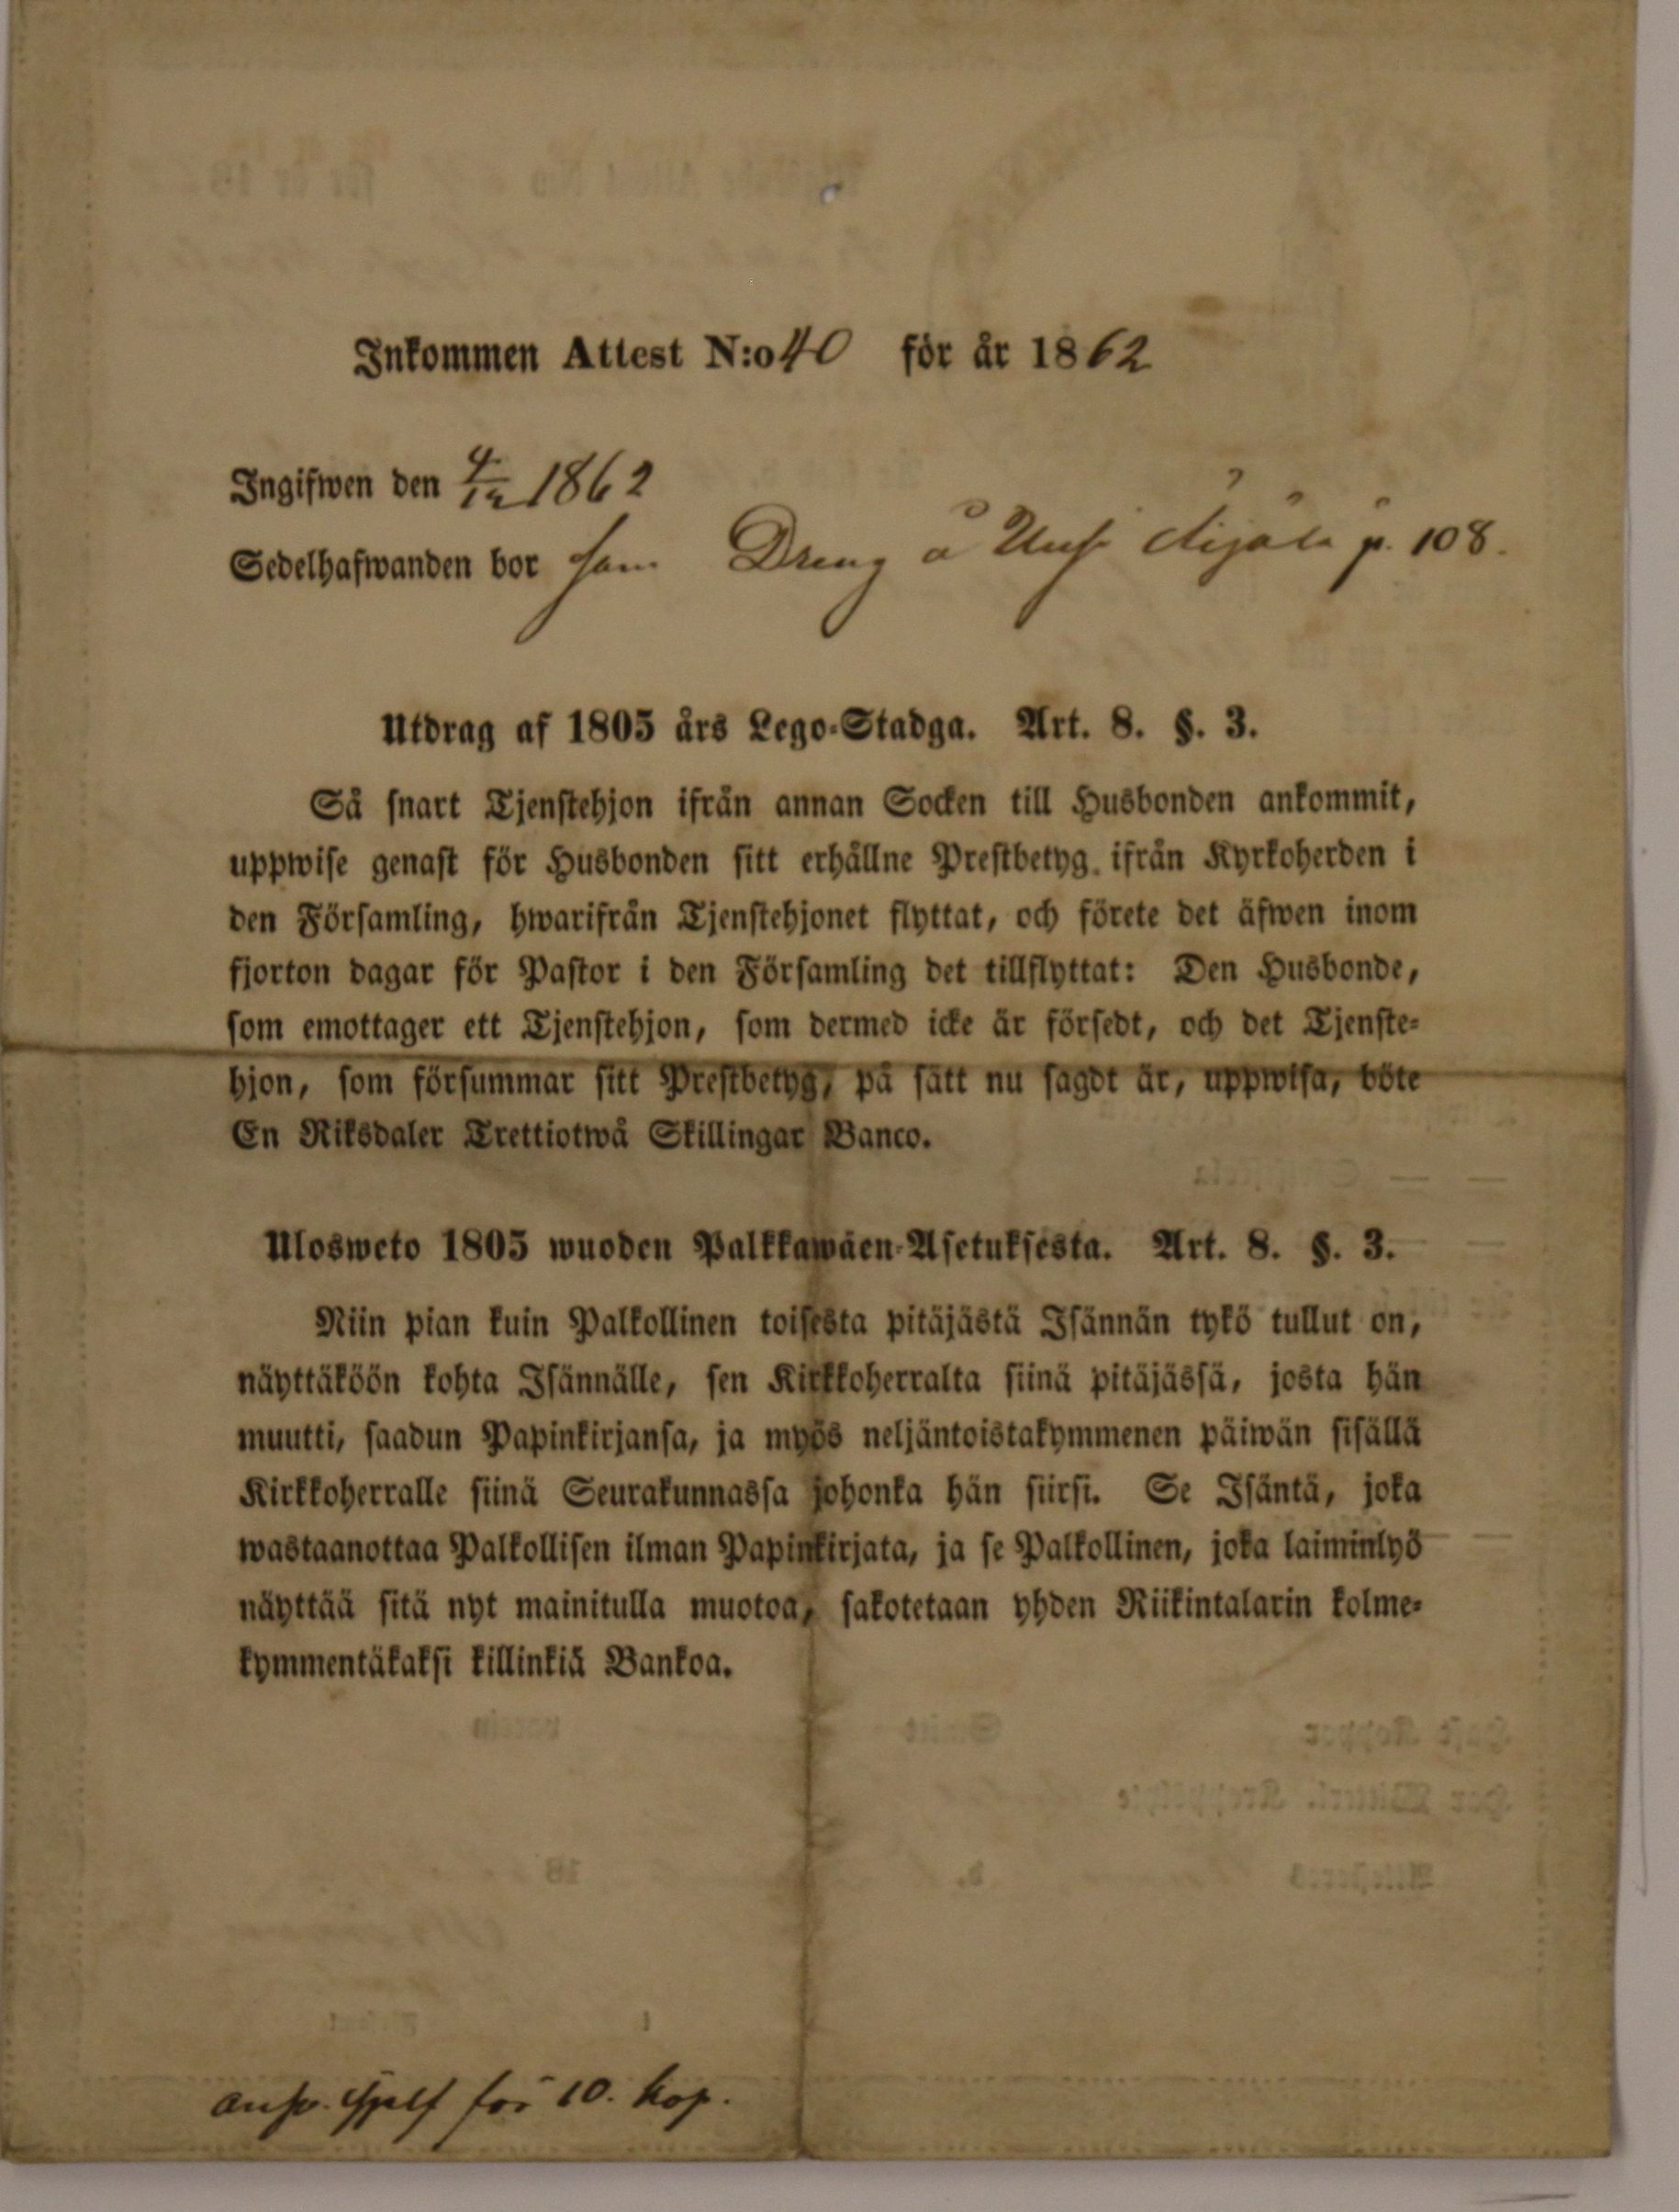 Inkommen Attest N:o 40 för år 1862
Ingifwen den 4/12 1862
Sedelhafwanden bor som Dreng å p. 108.
Utdrag af 1805 års Lego-Stadga. Art. 8. §. 3.
Så snart Tjenstehjon ifrån annan Socken till Husbonden ankommit,
uppwise genast för Husbonden sitt erhållne Prestbetyg ifrån Kyrkoherden i
den Församling, hwarifrån Tjenstehjonet flyttat, och förete det äfwen inom
fjorton dagar för Pastor i den Församling det tillflyttat: Den Husbonde,
som emottager ett Tjenstehjon, som dermed icke är försedt, och det Tjenste-
hjon, som försummar sitt Prestbetyg, på sätt nu sagdt är, uppwisa, böte
En Riksdaler Trettiotwå Skillingar Banco.
Ulosweto 1805 wuoden Palkkawäen-Asetuksesta. Art. 8. §. 3.
Niin pian kuin Palkollinen toisesta pitäjästä Isännän tykö tullut on,
näyttäköön kohta Isännälle, sen Kirkkoherralta siinä pitäjässä, josta hän
muutti, saadun Papinkirjansa, ja myös neljäntoistakymmenen päiwän sisällä
Kirkkoherralle siinä Seurakunnassa johonka hän siirsi. Se Isäntä, joka
wastaanottaa Palkollisen ilman Papinkirjata, ja se Palkollinen, joka laiminlyö
näyttää sitä nyt mainitulla muotoa, sakotetaan yhden Riikintalarin kolme-
kymmentäkaksi killinkiä Bankoa.
sjelf för 10. kop.